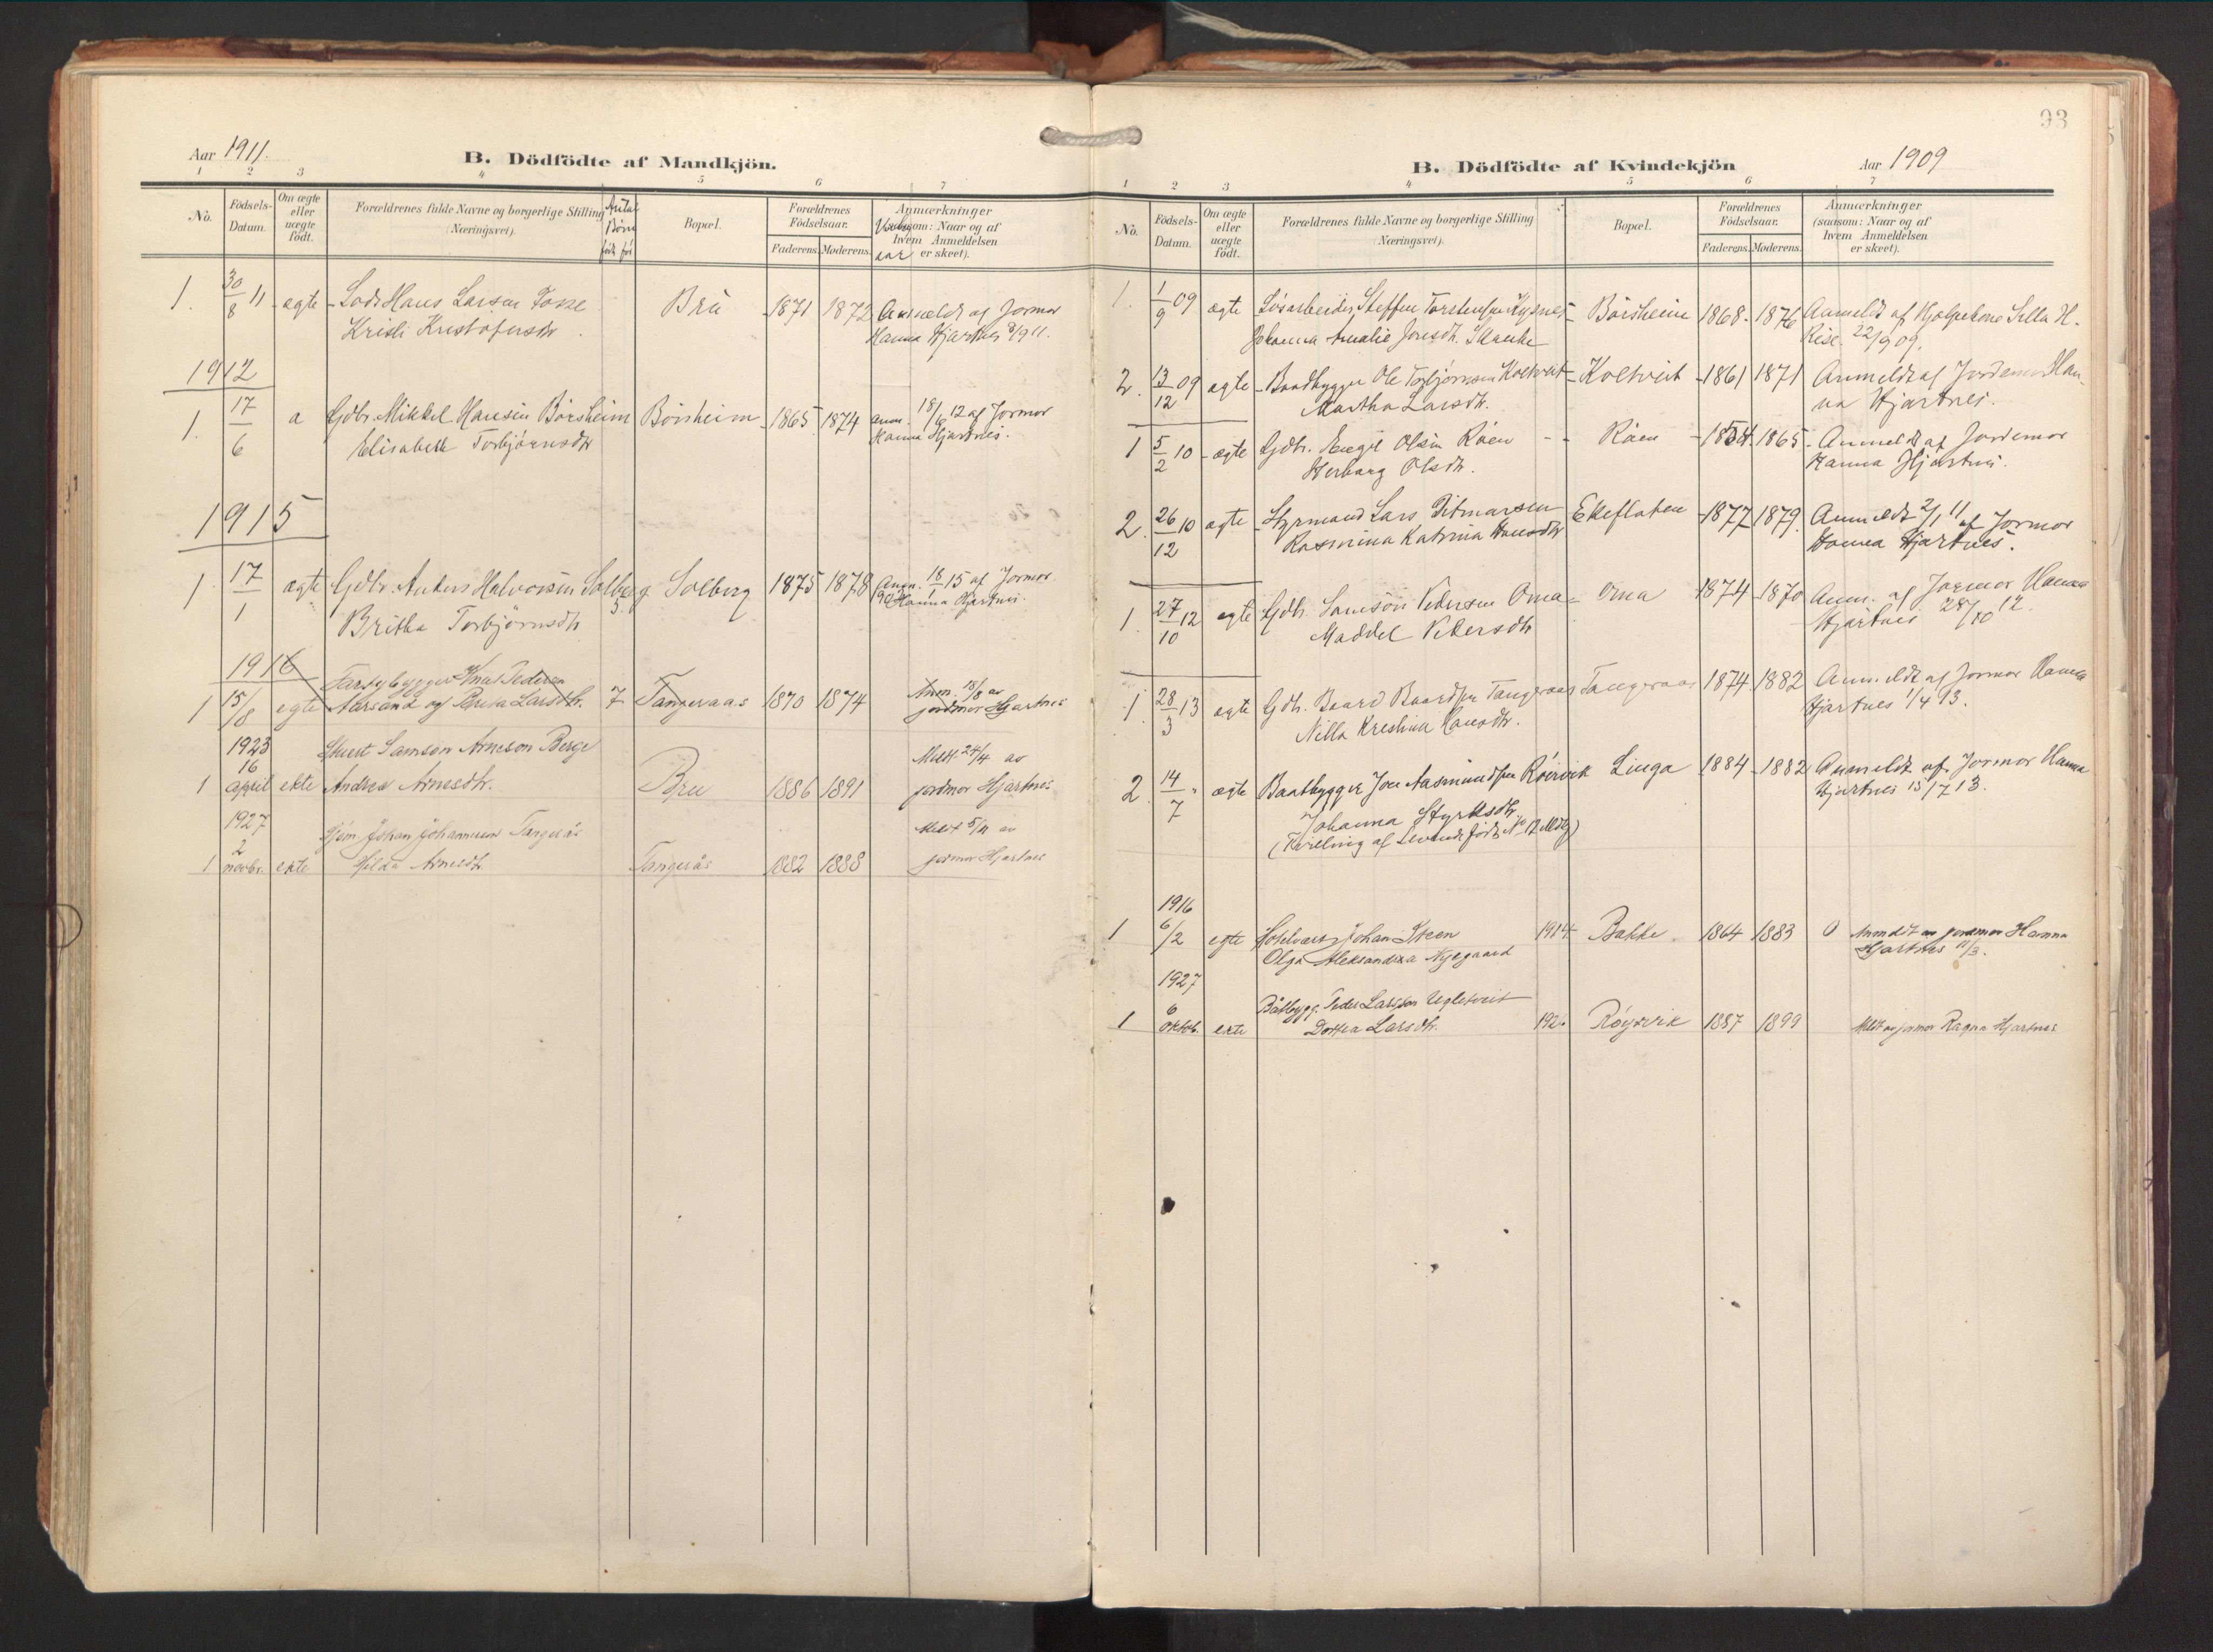 Aar 1911.
B. Dödfödte af Mandkjön.
1 2 3 4 5 6 7
No.
Födsels-
Datum.
Om ægte
eller
uægte
födt.
Forældrenes fulde Navne og borgerlige Stilling
(Næringsvei).
Antal
Börn
född för
Bopæl.
Forældrenes
Födselsaar.
Faderens. Moderens.
Anmærkninger
(saasom: Naar og af
hvem Anmeldelsen
er skeet).
aar
1. 30/8 11 - ægte - Lods Hans Larsen Fosse Brü - 1871 1872 Anmeldt af Jormor
Kristi Kristofersdtr Hanna Hjartnes 8/9 11.
1912
1. 17/6 a Gdbr. Mikkel Hansen Börsheim Börsheim - 1865 1874 Anm. 18/6 12 af Jormor
Elisabeth Torbjörnsdtr Hanna Hjartnes.
1915
1. 17/1 ægte Gdbr. Anders Halvorsen Solberg Solberg 1875 1878 Anm. 18/1 15 af Jormor
Britha Torbjörnsdtr 5. Hanna Hjartnes
1916
Fartøybygger Knut Pedersen Anm. 18/8 av
1 15/8 egte Aarsand og Brita Larsdtr. 7 Tangeraas 1870 1874 jordmor Hjartnes
1923
16 Samson Arneson Berge Meldt 24/4 av
1 april ekte Andrea Arnesdtr. Bru 1886 1891 jordmor Hjartnes
1927
2 Johan Johannessen Tangerås Meldt 5/11 av
1 novbr. ekte Hilda Arnesdtr. Tangerås 1882 1888 jormor Hjartnes
93
B. Dödfödte af Kvindekjön
Aar 1909
1 2 3 4 5 6 7
No.
Födsels-
Datum.
Om ægte
eller
uægte
födt.
Forældrenes fulde Navne og borgerlige Stilling
(Næringsvei).
Bopæl.
Forældrenes
Födselsaar.
Faderens. Moderens.
Anmærkninger
(saasom: Naar og af
hvem Anmeldelsen
er skeet).
1. 1/9 09 ægte Løsarbeider Steffen Torstensen Kysnes - Börsheim 1868 - 1876 Anmeldt af Hjælpekone Silla H.
Johanna Amalie Jonsdtr. Skanke Rise. 22/9 09.
2. 13/12 09 ægte - Baadbygger Ole Torbjörnsen Koltveit - Koltveit - 1861 1871 Anmeldt af Jordemor Han-
Martha Larsdtr. na Hjartnes.
1 5/2 10 - ægte Gdbr. Engel Olsen Röen - - Röen - 1854 - 1865 - Anmeldt af Jordemor
Herborg Olsdtr. Hanna Hjartnes.
2. 26/12 10 ægte - Styrmand Lars Ditmarsen Ekeflaten - 1877 1879. Anmeldt 2/1 11 af Jormor
Rasmina Katrina Hansdtr Hanna Hjartnes.
1. 27/10 12 ægte Gdbr. Samson Pedersen Oma - Oma 1874 - 1870 Anm. af Jormor Hanna
Maddel Pedersdtr Hjartnes 28/10 12.
1. 28/3 13 ægte Gdbr. Baard Baardsen Tangeraas Tangeraas 1874 1882 Anmeldt af Jormor Hanna
Nilla Kristina Hansdtr. Hjartnes 1/4 13.
2. 14/7 " ægte Baatbygger Jon Aasmundsen Röirvik Linga 1884 - 1882 Anmeldt af Jormor Hanna
Johanna Styrksdtr. Hjartnes 15/7 13.
(Tvilling af Levende födte No 12 Mdkj)
1916
1 6/2 egte Hotelvært Johan Steen 1914 Bakke 1864 1883 0 Anmeldt av jordemor Hanna
Olga Aleksandra Nygaard Hjartnes 11/3.
1927
6 Båtbygg. Peder Larsson Ugletveit
1 oktob. ekte Dortea Larsdtr. 192 Röyrvik 1887 1899 Meldt av jormor Ragna Hjartnes